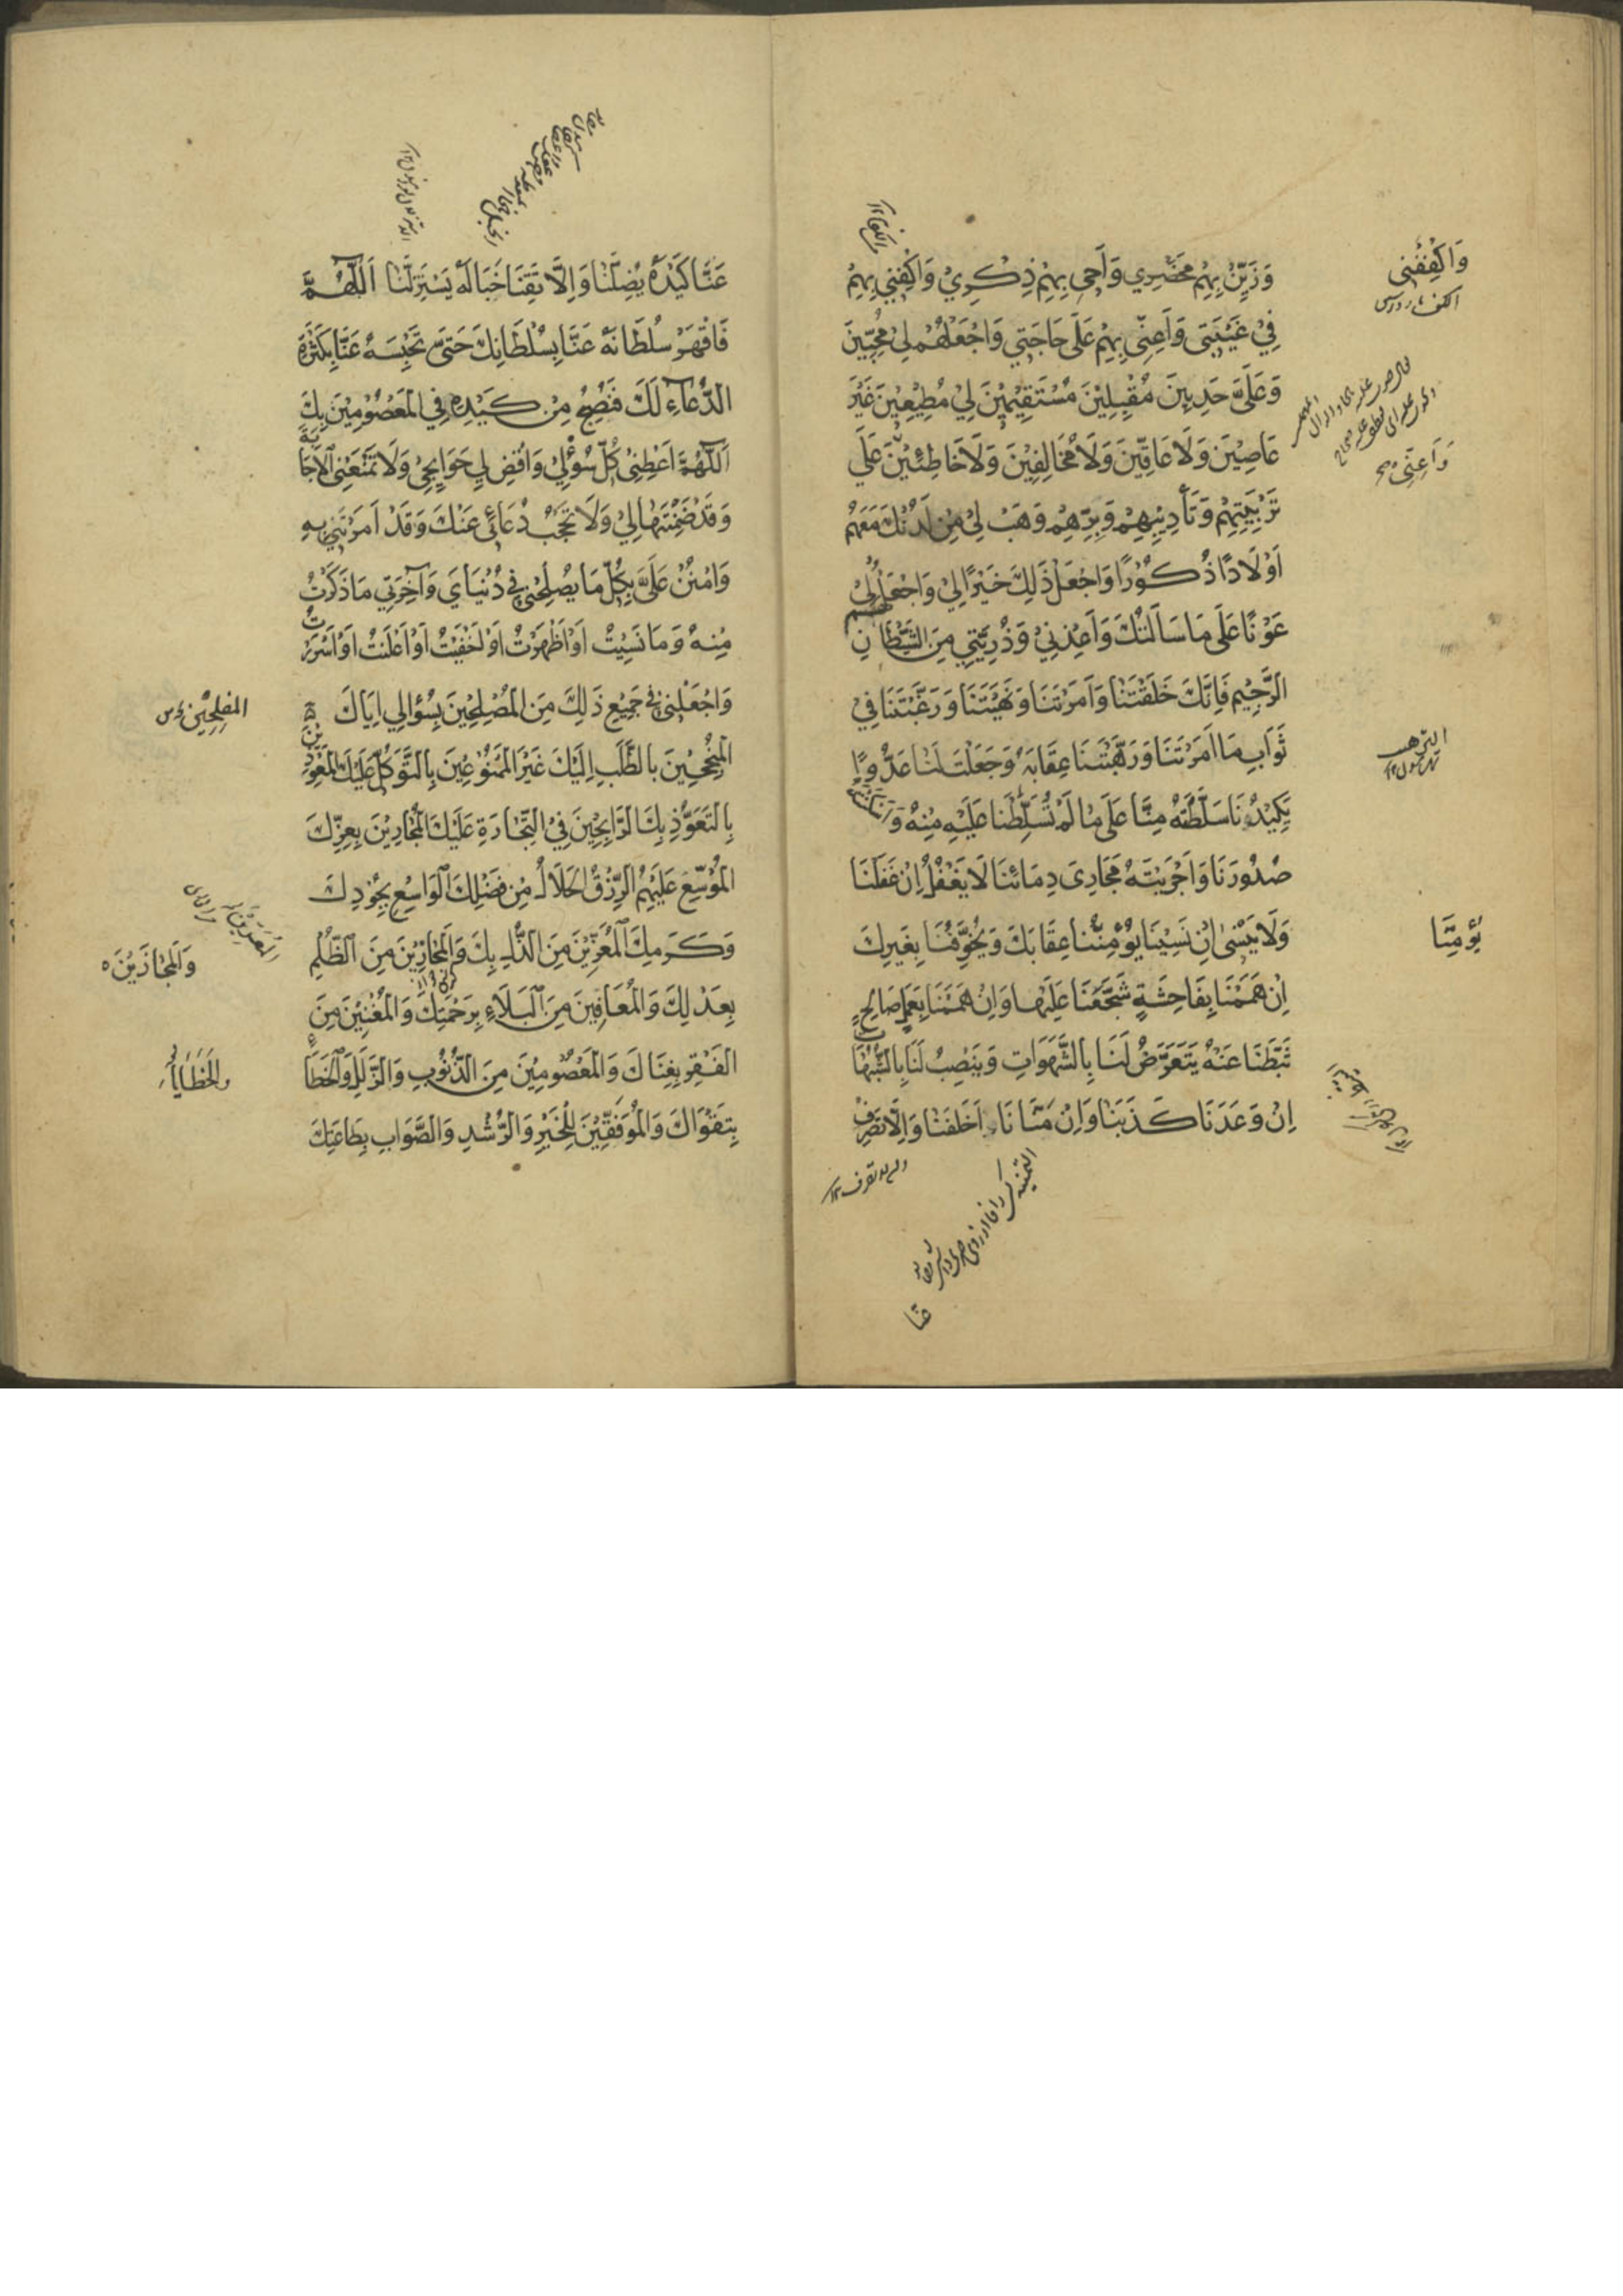 وَزَيِّنْ بِهِمْ مَحْضَرِي وَأَحْيِ بِهِمْ ذِكْرِيْ وَاكْفِنِي بِهِمْ
فِيْ غَيْبَتِى وَأَعِنِّى بِهِمْ عَلَى حَاجَتِي وَاجْعَلْهُمْ لِيْ مُحِبِّينَ
وَعَلَىَّ حَدِبِينَ مُقْبِلِيْنَ مُسْتَقِيْمِيْنَ لِيْ مُطِيْعِيْنَ غَيْرَ
عَاصِيْنَ وَلَا عَاقِّينَ وَلَا مُخَالِفِيْنَ وَلَا خَاطِئِيْنَ وَأَعِنِّى عَلَى
تَرْبِيَتِهِمْ وَتَأْدِيْبِهِمْ وَبِرِّهِمْ وَهَبْ لِيْ مِنْ لَدُنْكَ مَعَهُمْ
اَوْلَادًا ذُكُوْرًا وَاجْعَلْ ذَلِكَ خَيْرًا لِيْ وَاجْعَلْهُمْ لِيْ
عَوْنًا عَلَى مَا سَاَلْتُكَ وَاَعِذْنِيْ وَذُرِّيَّتِي مِنَ الشَّيْطَانِ
الرَّجِيْمِ فَاِنَّكَ خَلَقْتَنَا وَاَمَرْتَنَا وَنَهَيْتَنَا وَرَغَّبْتَنَا فِي
ثَوَابِ مَا اَمَرْتَنَا وَرَهَّبْتَنَا عِقَابَهُ وَجَعَلْتَ لَنَا عَدُوًّا
يَكِيْدُنَا سَلَّطْتَهُ مِنَّا عَلَى مَا لَمْ تُسَلِّطْنَا عَلَيْهِ مِنْهُ وَاَسْكَنْتَهُ
صُدُوْرَنَا وَاَجْرَيْتَهُ مَجَارِىَ دِمَائِنَا لَا يَغْفُلُ اِنْ غَفَلْنَا
وَلَا يَنْسٰى اِنْ نَسِيْنَا يُؤْمِنُنَا عِقَابَكَ وَيُخَوِّفُنَا بِغَيْرِكَ
اِنْ هَمَمْنَا بِفَاحِشَةٍ شَجَّعَنَا عَلَيْهَا وَاِنْ هَمَمْنَا بِعَمَلٍ صَالِحٍ
ثَبَّطَنَا عَنْهُ يَتَعَرَّضُ لَنَا بِالشَّهَوَاتِ وَيَنْصِبُ لَنَا بِالشُّبُهَاتِ
اِنْ وَعَدَنَا كَذَبَنَا وَاِنْ مَنَّانَا اَخْلَفَنَا وَاِلَّا تَصْرِفْ
عَنَّا
وَاكْفِفْنِى
وَاَعِنِّى صح
يُؤْمِنَّا
عَنَّا كَيْدَهُ يُضِلَّنَا وَاِلَّا تَقِنَا خَبَالَهُ يَسْتَزِلَّنَا اَللّٰهُمَّ
فَاقْهَرْ سُلْطَانَهُ عَنَّا بِسُلْطَانِكَ حَتَّى تَحْبِسَهُ عَنَّا بِكَثْرَةِ
الدُّعَاءِ لَكَ فَنُصْبِحَ مِنْ كَيْدِهِ فِي الْمَعْصُوْمِيْنَ بِكَ
اَللّٰهُمَّ اَعْطِنِىْ كُلَّ سُؤْلِيْ وَاقْضِ لِي حَوَايِجِىْ وَلَا تَمْنَعْنِى الْاِجَابَةَ
وَقَدْ ضَمِنْتَهَا لِيْ وَلَا تَحْجُبْ دُعَائِى عَنْكَ وَقَدْ اَمَرْتَنِي بِهِ
وَامْنُنْ عَلَىَّ بِكُلِّ مَا يُصْلِحُنِي فِي دُنْيَايَ وَآخِرَتِي مَا ذَكَرْتُ
مِنْهُ وَمَا نَسِيْتُ اَوْ اَظْهَرْتُ اَوْ اَخْفَيْتُ اَوْ اَعْلَنْتُ اَوْ اَسْرَرْتُ
وَاجْعَلْنِي فِي جَمِيْعِ ذَلِكَ مِنَ الْمُصْلِحِيْنَ بِسُؤَالِي اِيَّاكَ
الْمُنْجِحِيْنَ بِالطَّلَبِ اِلَيْكَ غَيْرِ الْمَمْنُوْعِيْنَ بِالتَّوَكُّلِ عَلَيْكَ الْمُعَوَّدِيْنَ
بِالتَّعَوُّذِ بِكَ الرَّابِحِيْنَ فِيْ التِّجَارَةِ عَلَيْكَ الْمُجَارِيْنَ بِعِزِّكَ
الْمُوَسَّعِ عَلَيْهِمُ الرِّزْقُ الْحَلَالُ مِنْ فَضْلِكَ الْوَاسِعِ بِجُوْدِكَ
وَكَرَمِكَ الْمُعَزِّيْنَ مِنَ الذُّلِّ بِكَ وَالْمُجَارِيْنَ مِنَ الظُّلْمِ
بِعَدْلِكَ وَالْمُعَافِيْنَ مِنَ الْبَلَاءِ بِرَحْمَتِكَ وَالْمُغْنِيْنَ مِنَ
الْفَقْرِ بِغِنَاكَ وَالْمَعْصُوْمِيْنَ مِنَ الذُّنُوْبِ وَالزَّلَلِ وَالْخَطَاءِ
بِتَقْوَاكَ وَالْمُوَفَّقِيْنَ لِلْخَيْرِ وَالرُّشْدِ وَالصَّوَابِ بِطَاعَتِكَ
الْمُفْلِحِيْنَ س
وَالْمُجَازَيْنَ
وَالْخَطَايَا